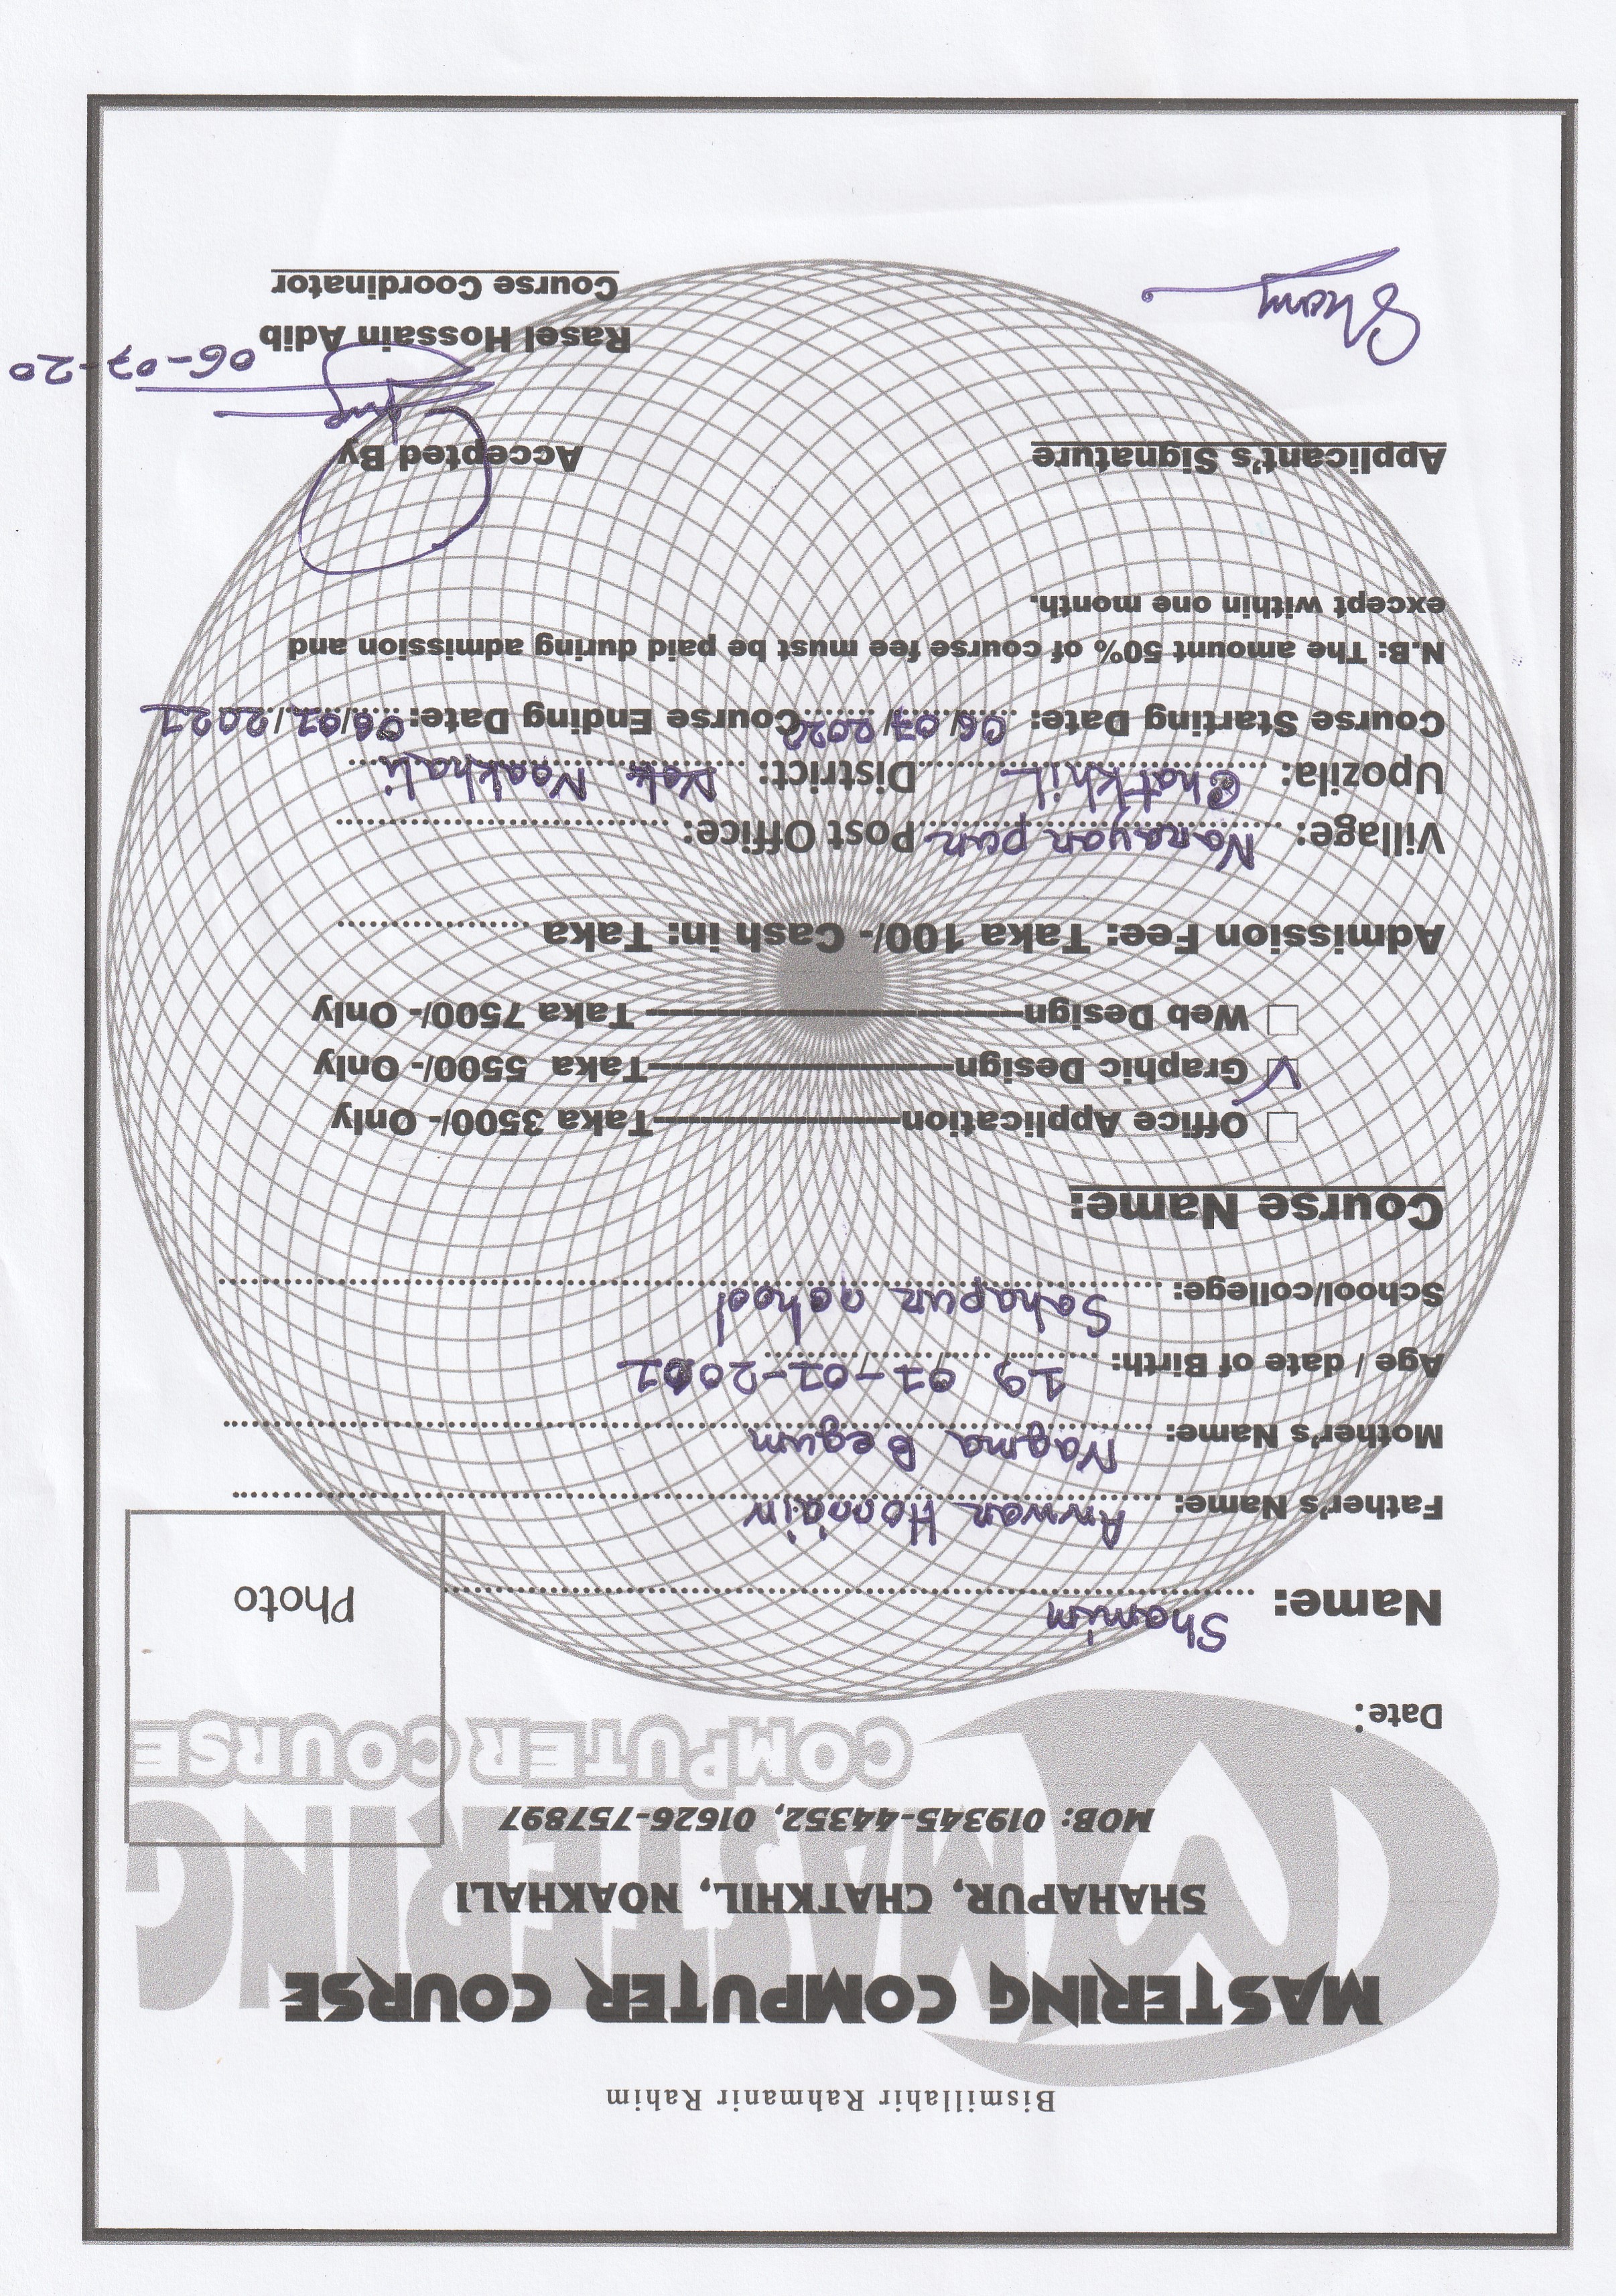 Bismillahir Rahmanir Rahim
MASTERING COMPUTER COURSE
SHAHAPUR, CHATKHIL, NOAKHALI
MOB: 019345-44352, 01626-757897
MASTERING
COMPUTER COURSE
Date:
Photo
Name: Shamim
Father's Name: Anwar Hossain
Mother's Name: Nagma Begum
Age / date of Birth: 19 01-01-2001
School/college: Sahapur school
Course Name:
Office Application Taka 3500/- Only
Graphic Design Taka 5500/- Only
Web Design Taka 7500/- Only
Admission Fee: Taka 100/- Cash in: Taka
Village: Narayanpur Post Office:
Upozila: Chatkhil District: Noakhali
Course Starting Date: 06/07/2020 Course Ending Date: 06/01/2021
N.B: The amount 50% of course fee must be paid during admission and
except within one month.
Applicant's Signature Accepted By
Sham
06-07-20
Rasel Hossain Adib
Course Coordinator